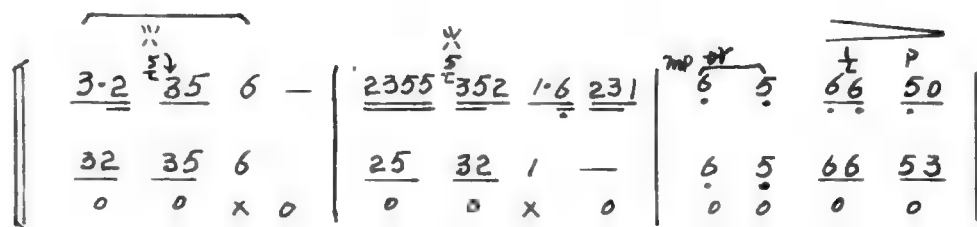 5 5 mp p
3·2 35 6 — 2355 352 1·6 231 6 5 66 50
32 35 6 25 32 1 — 6 5 66 53
0 0 x 0 0 0 x 0 0 0 0 0